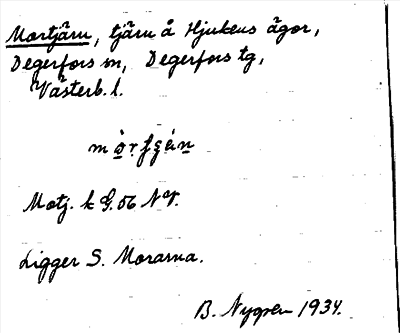 Mortjärn, tjärn å Hjukens ägor,
Degerfors sn, Degerfors tg,
Västerb. l.
Motj. k G. 56 NV.
Ligger S. Morarna.
B. Nygren 1934.